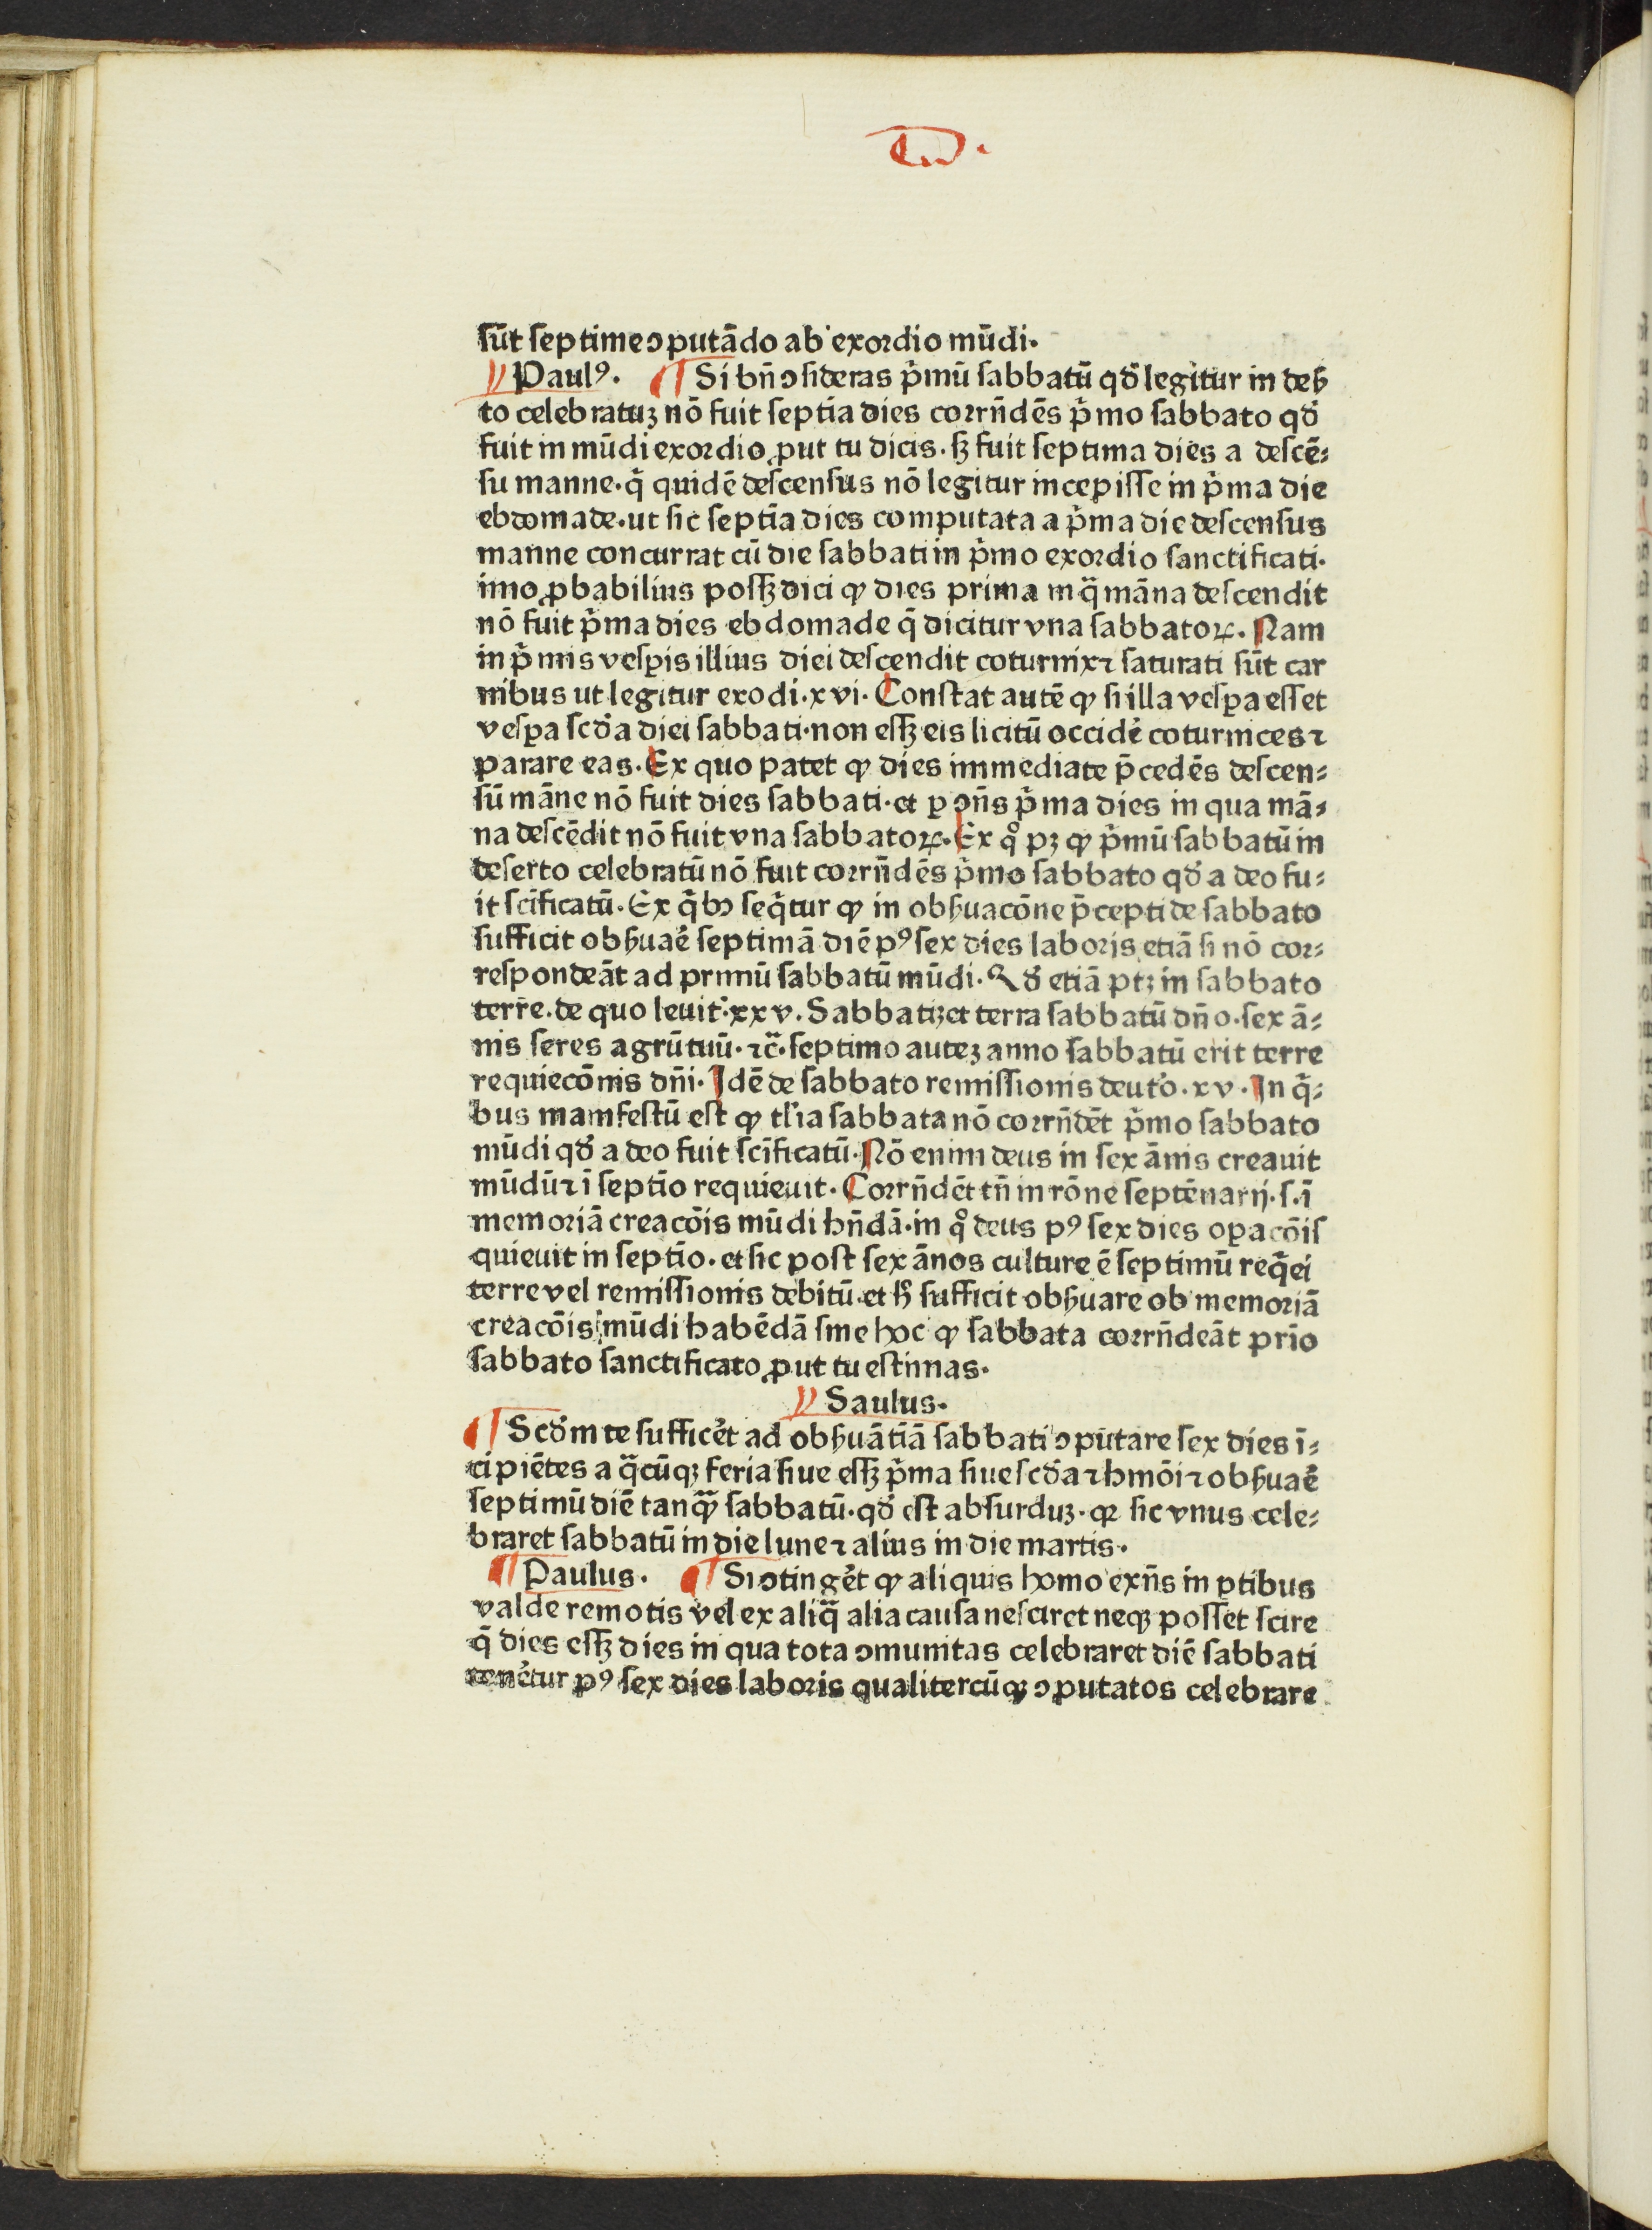 sūt septime ↄputādo ab exordio mūdi.
Paulꝰ. ¶ Si bn̄ ↄsideras p̄mū sabbatū qđ legitur in deẜ
to celebratuꝫ nō fuit septīa dies corrn̄dēs p̄mo sabbato qđ
fuit in mūdi exordio ꝓut tu dicis. sꝫ fuit septima dies a descē⸗
su manne. q̄ quidē descensus nō legitur incepisse in p̄ma die
ebdomade. ut sic septīa dies computata a p̄ma die descensus
manne concurrat cū die sabbati in p̄mo exordio sanctificati.
imo ꝓbabilius possꝫ dici ꝙ dies prima in q̄ māna descendit
nō fuit p̄ma dies ebdomade q̄ dicitur vna sabbatoꝝ. Nam
in p̄mis vesꝑis illius diei descendit coturnix ⁊ saturati sūt car
nibus ut legitur exodi. xvi. Constat autē ꝙ si illa vesꝑa esset
vesꝑa scđa diei sabbati. non essꝫ eis licitū occidē coturnices ⁊
parare eas. Ex quo patet ꝙ dies immediate p̄cedēs descen⸗
sū māne nō fuit dies sabbati. et ꝑ ↄn̄s p̄ma dies in qua mā⸗
na descēdit nō fuit vna sabbatoꝝ. Ex qͦ pꝫ ꝙ p̄mū sabbatū in
deserto celebratū nō fuit corrn̄dēs p̄mo sabbato qđ a deo fu⸗
it scīficatū. Ex q̄bꝰ seq̄tur ꝙ in obẜuacōne p̄cepti de sabbato
sufficit obẜuaē septimā diē pꝰ sex dies laboris etiā si nō cor⸗
respondeāt ad primū sabbatū mūdi. Qđ etiā ptꝫ in sabbato
terre. de quo leuit. xxv. Sabbatizet terra sabbatū dn̄o. sex ā⸗
nis seres agrū tuū. ⁊c̄. septimo auteꝫ anno sabbatū erit terre
requiecōnis dn̄i. Idē de sabbato remissionis deuto. xv. In q̄⸗
bus manifestū est ꝙ tl̄ia sabbata nō corrn̄dēt p̄mo sabbato
mūdi qđ a deo fuit scīficatū. Nō enim deus in sex ānis creauit
mūdū ⁊ ī septīo requieuit. Corrn̄dēt tn̄ in rōne septēnarij. s. ī
memoriā creacōis mūdi hn̄dā. in qͦ deus pꝰ sex dies oꝑacōis
quieuit in septīo. et sic post sex ānos culture ē septimū req̄ei
terre vel remissionis debitū. et ħ sufficit obẜuare ob memoriā
creacōis mūdi habēdā sine hoc ꝙ sabbata corrn̄deāt prīo
sabbato sanctificato ꝓut tu estimas.
Saulus.
¶ Scđm te sufficēt ad obẜuātiā sabbati ↄputare sex dies ī⸗
cipiētes a q̄cūqꝫ feria siue essꝫ p̄ma siue scđa ⁊ hmōi ⁊ obẜuaē
septimū diē tanq̄ꝫ sabbatū. qđ est absurduꝫ. qꝛ sic vnus cele⸗
braret sabbatū in die lune ⁊ alius in die martis.
¶ Paulus. ¶ Si ↄtingēt ꝙ aliquis homo exn̄s in ꝑtibus
valde remotis vel ex aliq̄ alia causa nesciret neqꝫ posset scire
q̄ dies essꝫ dies in qua tota ↄmunitas celebraret diē sabbati
tenētur pꝰ sex dies laboris qualitercūqꝫ ↄputatos celebrare